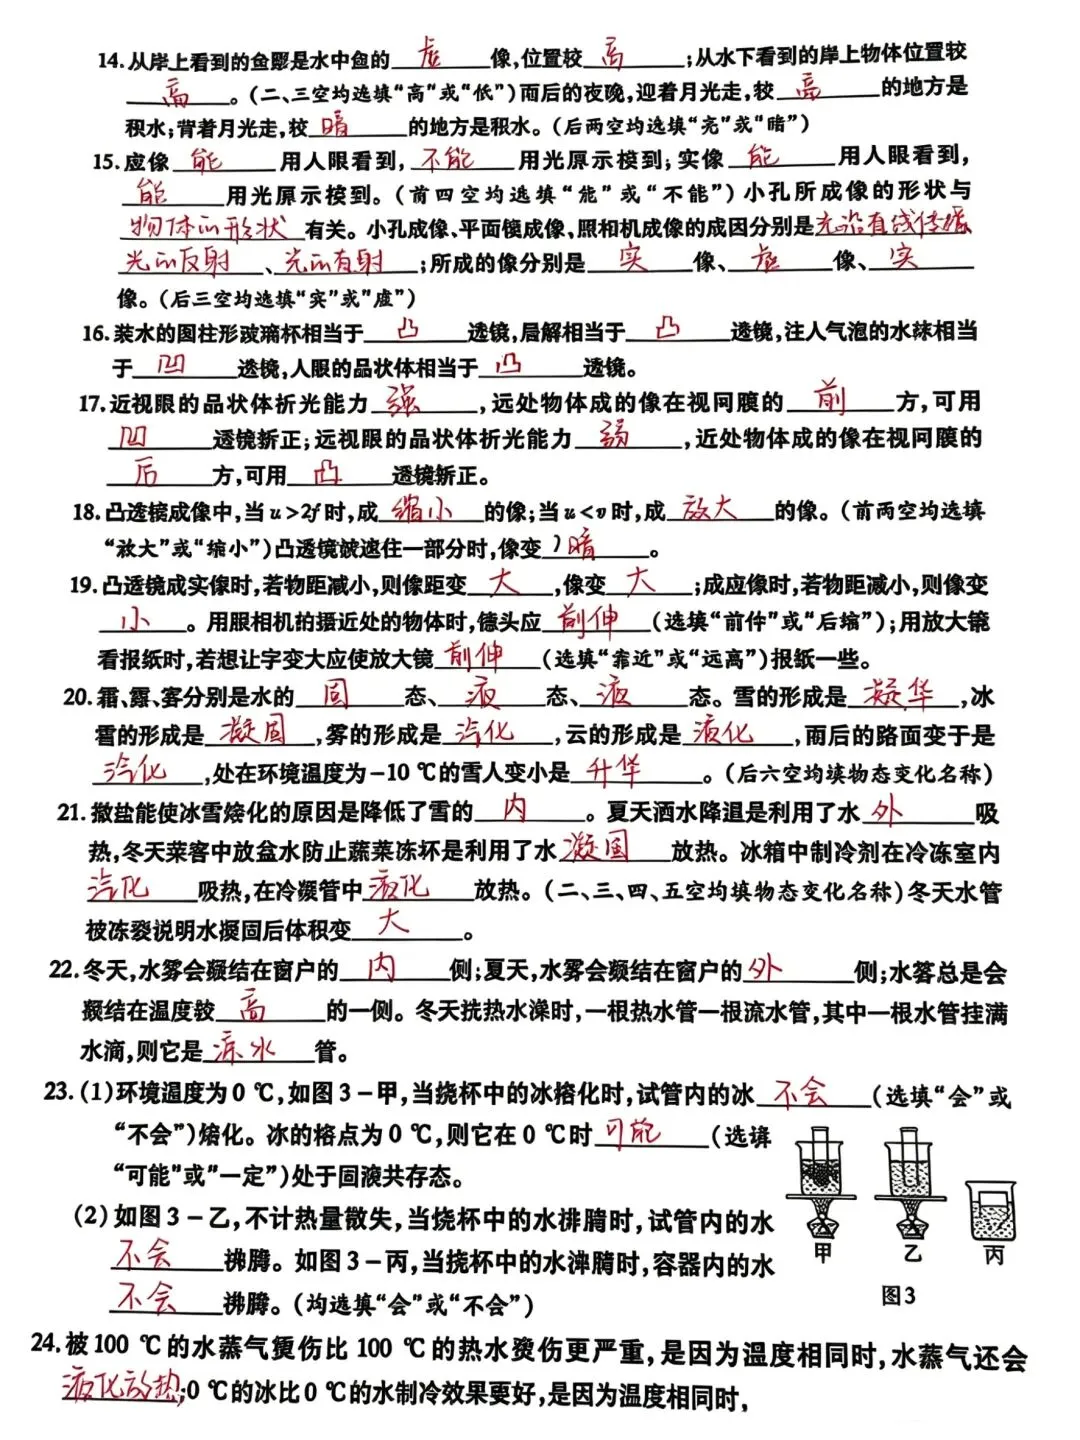 14.从岸上看到的鱼郾是水中鱼的 虚 像,位置较 高 ;从水下看到的岸上物体位置较
高 。(二、三空均选填“高”或“低”)雨后的夜晚,迎着月光走,较 高 的地方是
积水;背着月光走,较 暗 的地方是积水。(后两空均选填“亮”或“暗”)
15.应像 能 用人眼看到, 不能 用光屏示模到;实像 能 用人眼看到,
能 用光屏示模到。(前四空均选填“能”或“不能”)小孔所成像的形状与
物体的形状 有关。小孔成像、平面镜成像、照相机成像的成因分别是 光沿直线传播
光的反射 、 光的有射 ;所成的像分别是 实 像、 虚 像、 实
像。(后三空均选填“实”或“虚”)
16.装水的圆柱形玻璃杯相当于 凸 透镜,局解相当于 凸 透镜,注人气泡的水袜相当
于 凹 透镜,人眼的品状体相当于 凸 透镜。
17.近视眼的品状体折光能力 强 ,远处物体成的像在视网膜的 前 方,可用
凹 透镜新正;远视眼的品状体折光能力 弱 ,近处物体成的像在视网膜的
后 方,可用 凸 透镜新正。
18.凸透镜成像中,当u>2f时,成 缩小 的像;当u<v时,成 放大 的像。(前两空均选填
“放大”或“缩小”)凸透镜被速住一部分时,像变 暗 。
19.凸透镜成实像时,若物距减小,则像距变 大 ,像变 大 ;成应像时,若物距减小,则像变
小 。用照相机的摄近处的物体时,镜头应 前伸 (选填“前仲”或“后缩”);用放大镜
看报纸时,若想让字变大应使放大镜 前伸 (选填“靠近”或“远高”)报纸一些。
20.霜、露、雾分别是水的 固 态、 液 态、 液 态。雪的形成是 凝华 ,冰
雹的形成是 凝固 ,雾的形成是 汽化 ,云的形成是 液化 ,雨后的路面变于是
汽化 ,处在环境温度为-10 ℃的雪人变小是 升华 。(后六空均填物态变化名称)
21.撒盐能使冰雪熔化的原因是降低了雪的 内 。夏天洒水降温是利用了水 外 吸
热,冬天菜客中放盆水防止蔬菜冻坏是利用了水 凝固 放热。冰箱中制冷剂在冷冻室内
汽化 吸热,在冷凝管中 液化 放热。(二、三、四、五空均填物态变化名称)冬天水管
被冻裂说明水凝固后体积变 大 。
22.冬天,水雾会凝结在窗户的 内 侧;夏天,水雾会凝结在窗户的 外 侧;水雾总是会
凝结在温度较 高 的一侧。冬天洗热水澡时,一根热水管一根流水管,其中一根水管挂满
水滴,则它是 凉水 管。
23.(1)环境温度为0 ℃,如图3-甲,当烧杯中的冰熔化时,试管内的冰 不会 (选填“会”或
“不会”)熔化。冰的熔点为0 ℃,则它在0 ℃时 可能 (选填
“可能”或“一定”)处于固液共存态。
(2)如图3-乙,不计热量散失,当烧杯中的水排腾时,试管内的水
不会 拂腾。如图3-丙,当烧杯中的水沸腾时,容器内的水
不会 拂腾。(均选填“会”或“不会”)
甲 乙 丙
图3
24.被100 ℃的水蒸气烫伤比100 ℃的热水烫伤更严重,是因为温度相同时,水蒸气还会
液化放热;0 ℃的冰比0 ℃的水制冷效果要好,是因为温度相同时,